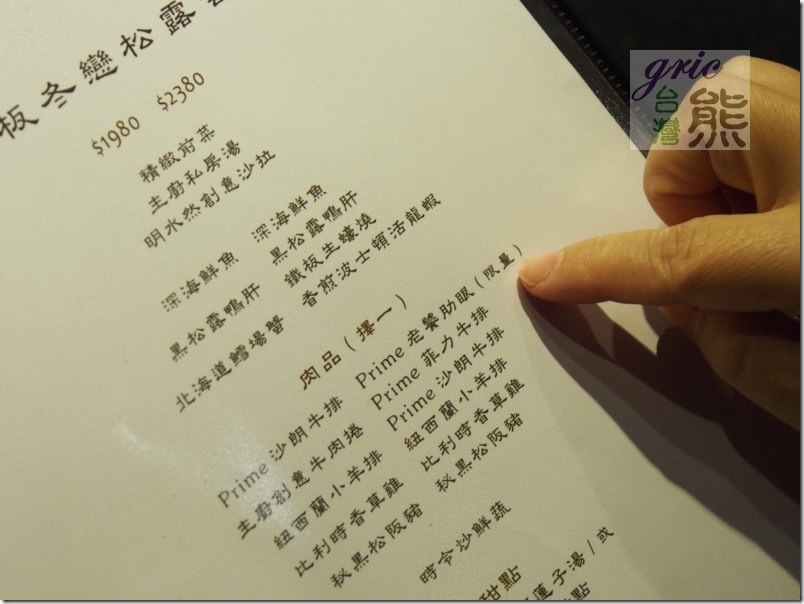 板冬戀松露
$1980 $2380
精緻前菜
主廚私房湯
明水然創意沙拉
深海鮮魚
黑松露鴨肝
北海道鱈場蟹
深海鮮魚
黑松露鴨肝
鐵板生蠔燒
香煎波士頓活龍蝦
肉品(擇一)
Prime 沙朗牛排
主廚創意牛肉捲
紐西蘭小羊排
比利時香草雞
秘黑松阪豬
Prime 老饕肋眼(限量)
Prime 菲力牛排
Prime 沙朗牛排
紐西蘭小羊排
比利時香草雞
秘黑松阪豬
時令炒鮮蔬
甜點
蓮子湯/或
點
gric
台灣熊